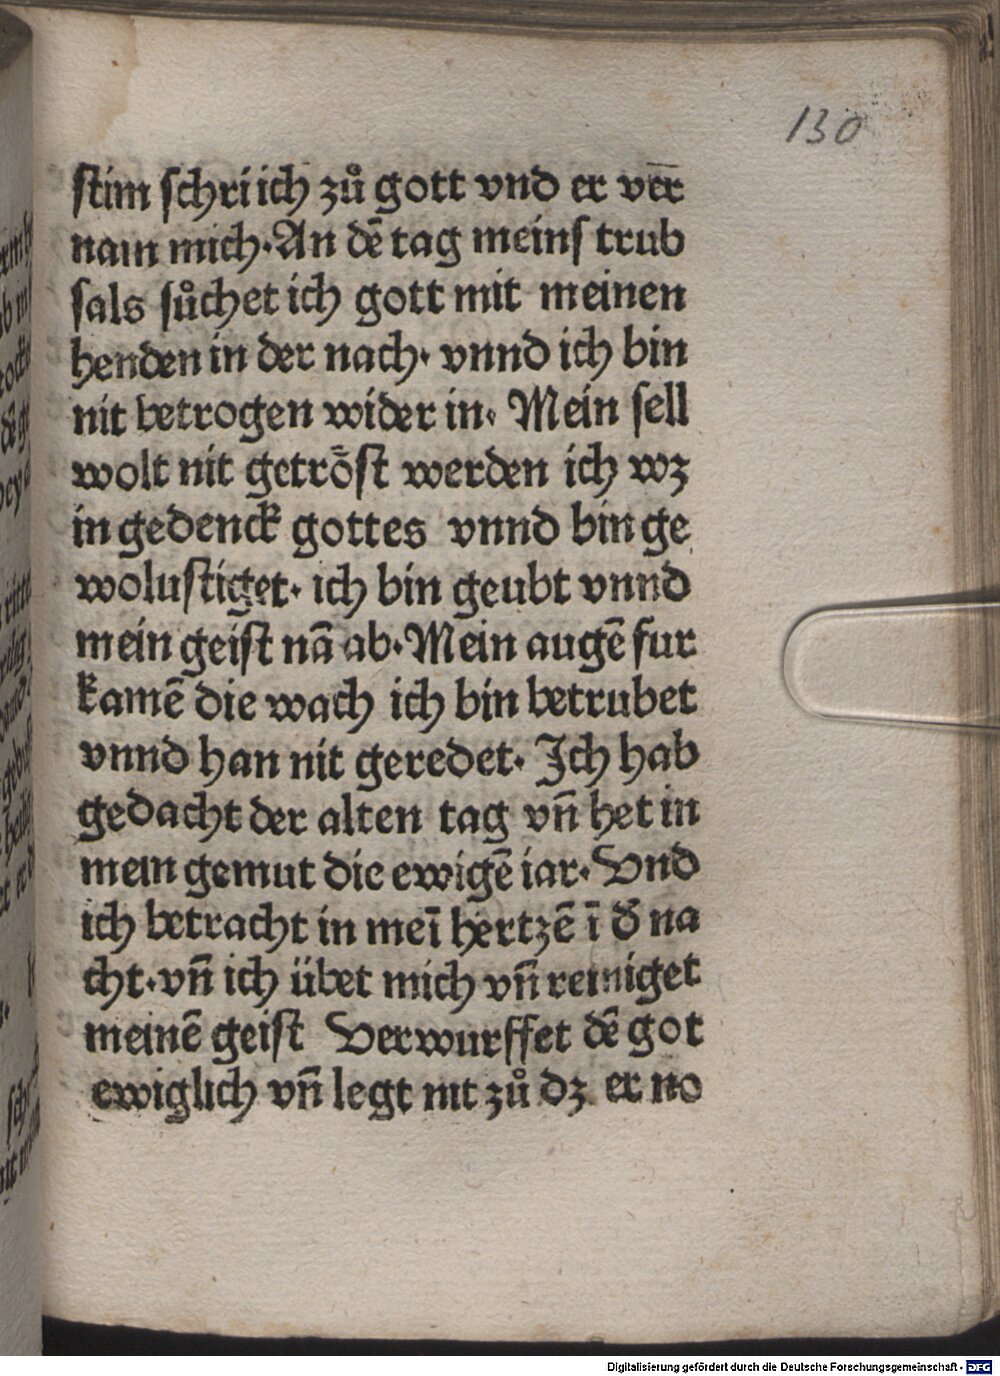 130
stim schri ich zů gott vnd er ver̄
nam mich. An dē tag meins trub
sals sůchet ich gott mit meinen
henden in der nach. vnnd ich bin
nit betrogen wider in. Mein sell
wolt nit getrȫst werden ich wz
in gedenck gottes vnnd bin ge
wolustiget. ich bin geubt vnnd
mein geist nā ab. Mein augē fur
kamē die wach ich bin betrubet
vnnd han nit geredet. Ich hab
gedacht der alten tag vn̄ het in
mein gemut die ewigē iar. Vnd
ich betracht in meī hertzē ī d̄ na
cht. vn̄ ich übet mich vn̄ reiniget
meinē geist Verwurffet dē got
ewiglich vn̄ legt nit zů dz er no
Digitalisierung gefördert durch die Deutsche Forschungsgemeinschaft - DFG